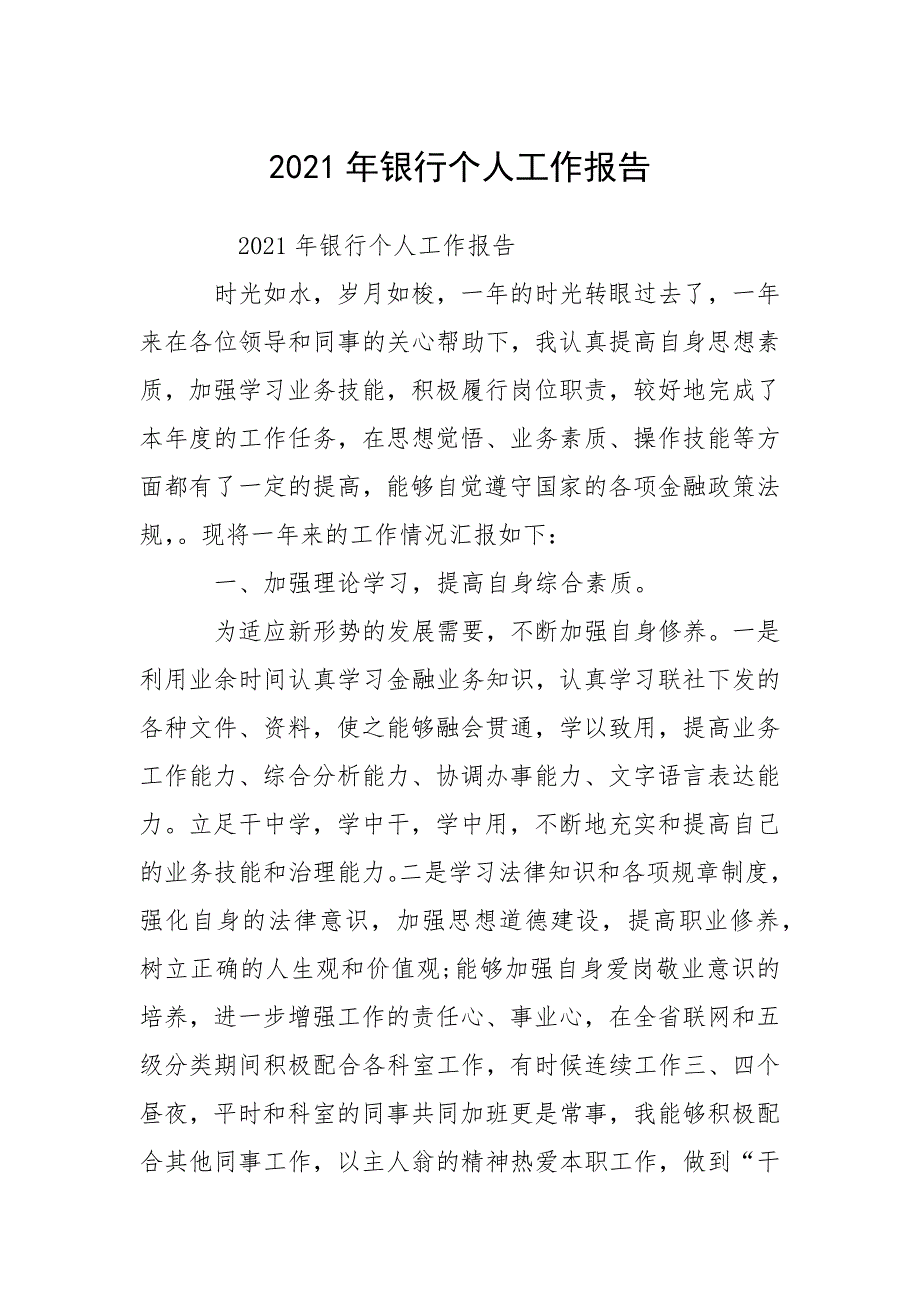 2021年银行个人工作报告
2021年银行个人工作报告
时光如水，岁月如梭，一年的时光转眼过去了，一年
来在各位领导和同事的关心帮助下，我认真提高自身思想素
质，加强学习业务技能，积极履行岗位职责，较好地完成了
本年度的工作任务，在思想觉悟、业务素质、操作技能等方
面都有了一定的提高，能够自觉遵守国家的各项金融政策法
规，。现将一年来的工作情况汇报如下：
一、加强理论学习，提高自身综合素质。
为适应新形势的发展需要，不断加强自身修养。一是
利用业余时间认真学习金融业务知识，认真学习联社下发的
各种文件、资料，使之能够融会贯通，学以致用，提高业务
工作能力、综合分析能力、协调办事能力、文字语言表达能
力。立足干中学，学中干，学中用，不断地充实和提高自己
的业务技能和治理能力。二是学习法律知识和各项规章制度，
强化自身的法律意识，加强思想道德建设，提高职业修养，
树立正确的人生观和价值观;能够加强自身爱岗敬业意识的
培养，进一步增强工作的责任心、事业心，在全省联网和五
级分类期间积极配合各科室工作，有时候连续工作三、四个
昼夜，平时和科室的同事共同加班更是常事，我能够积极配
合其他同事工作，以主人翁的精神热爱本职工作，做到“干